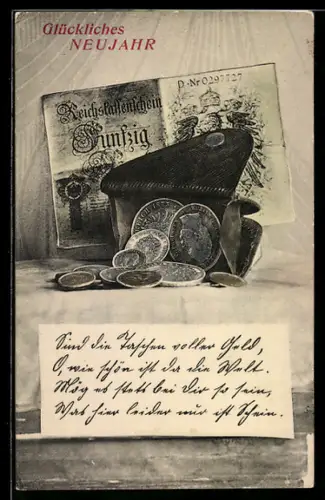 Glückliches
NEUJAHR
D·Nr0297727
Reichskassenschein
Fünfzig
Sind die Taschen voller Geld,
O, wie schön ist da die Welt.
Mög es stets bei Dir so sein,
Was hier leider nur ist Schein.